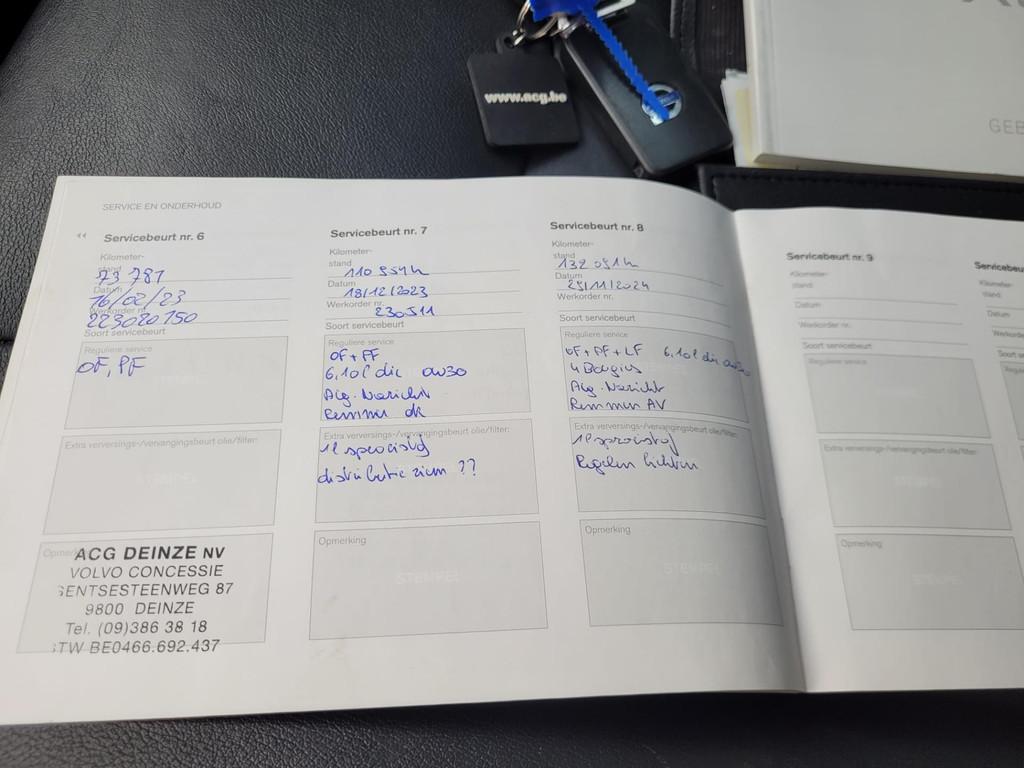 www.acg.be
GEB
SERVICE EN ONDERHOUD
Servicebeurt nr. 6
Kilometer-
stand
73 781
Datum
16/02/23
Werkorder nr.
223020150
Soort servicebeurt
Reguliere service
OF, PF
Extra verversings-/vervangingsbeurt olie/filter:
Opmerking
ACG DEINZE NV
VOLVO CONCESSIE
GENTSESTEENWEG 87
9800 DEINZE
Tel. (09)386 38 18
BTW BE0466.692.437
Servicebeurt nr. 7
Kilometer-
stand
110 554 h
Datum
18/12/2023
Werkorder nr.
230511
Soort servicebeurt
Reguliere service
OF + FF
6,10l dic ow30
Alg. Nazicht
Remmen ok
Extra verversings-/vervangingsbeurt olie/filter:
1l sproeistof
distributie riem ??
Opmerking
STEMPEL
Servicebeurt nr. 8
Kilometer-
stand
132 051 h
Datum
25/11/2024
Werkorder nr.
Soort servicebeurt
Reguliere service
OF + PF + LF 6,10l dic ow30
4 Bougies
Alg. Nazicht
Remmen AV
Extra verversings-/vervangingsbeurt olie/filter:
1l sproeistof
Regelen lichten
Opmerking
STEMPEL
Servicebeurt nr. 9
Kilometer-
stand:
Datum
Werkorder nr.
Soort servicebeurt
Reguliere service
Extra verversings-/vervangingsbeurt olie/filter:
Opmerking
STEMPEL
Servicebeu
Kilometer-
stand:
Datum
Werkorder
Soort ser